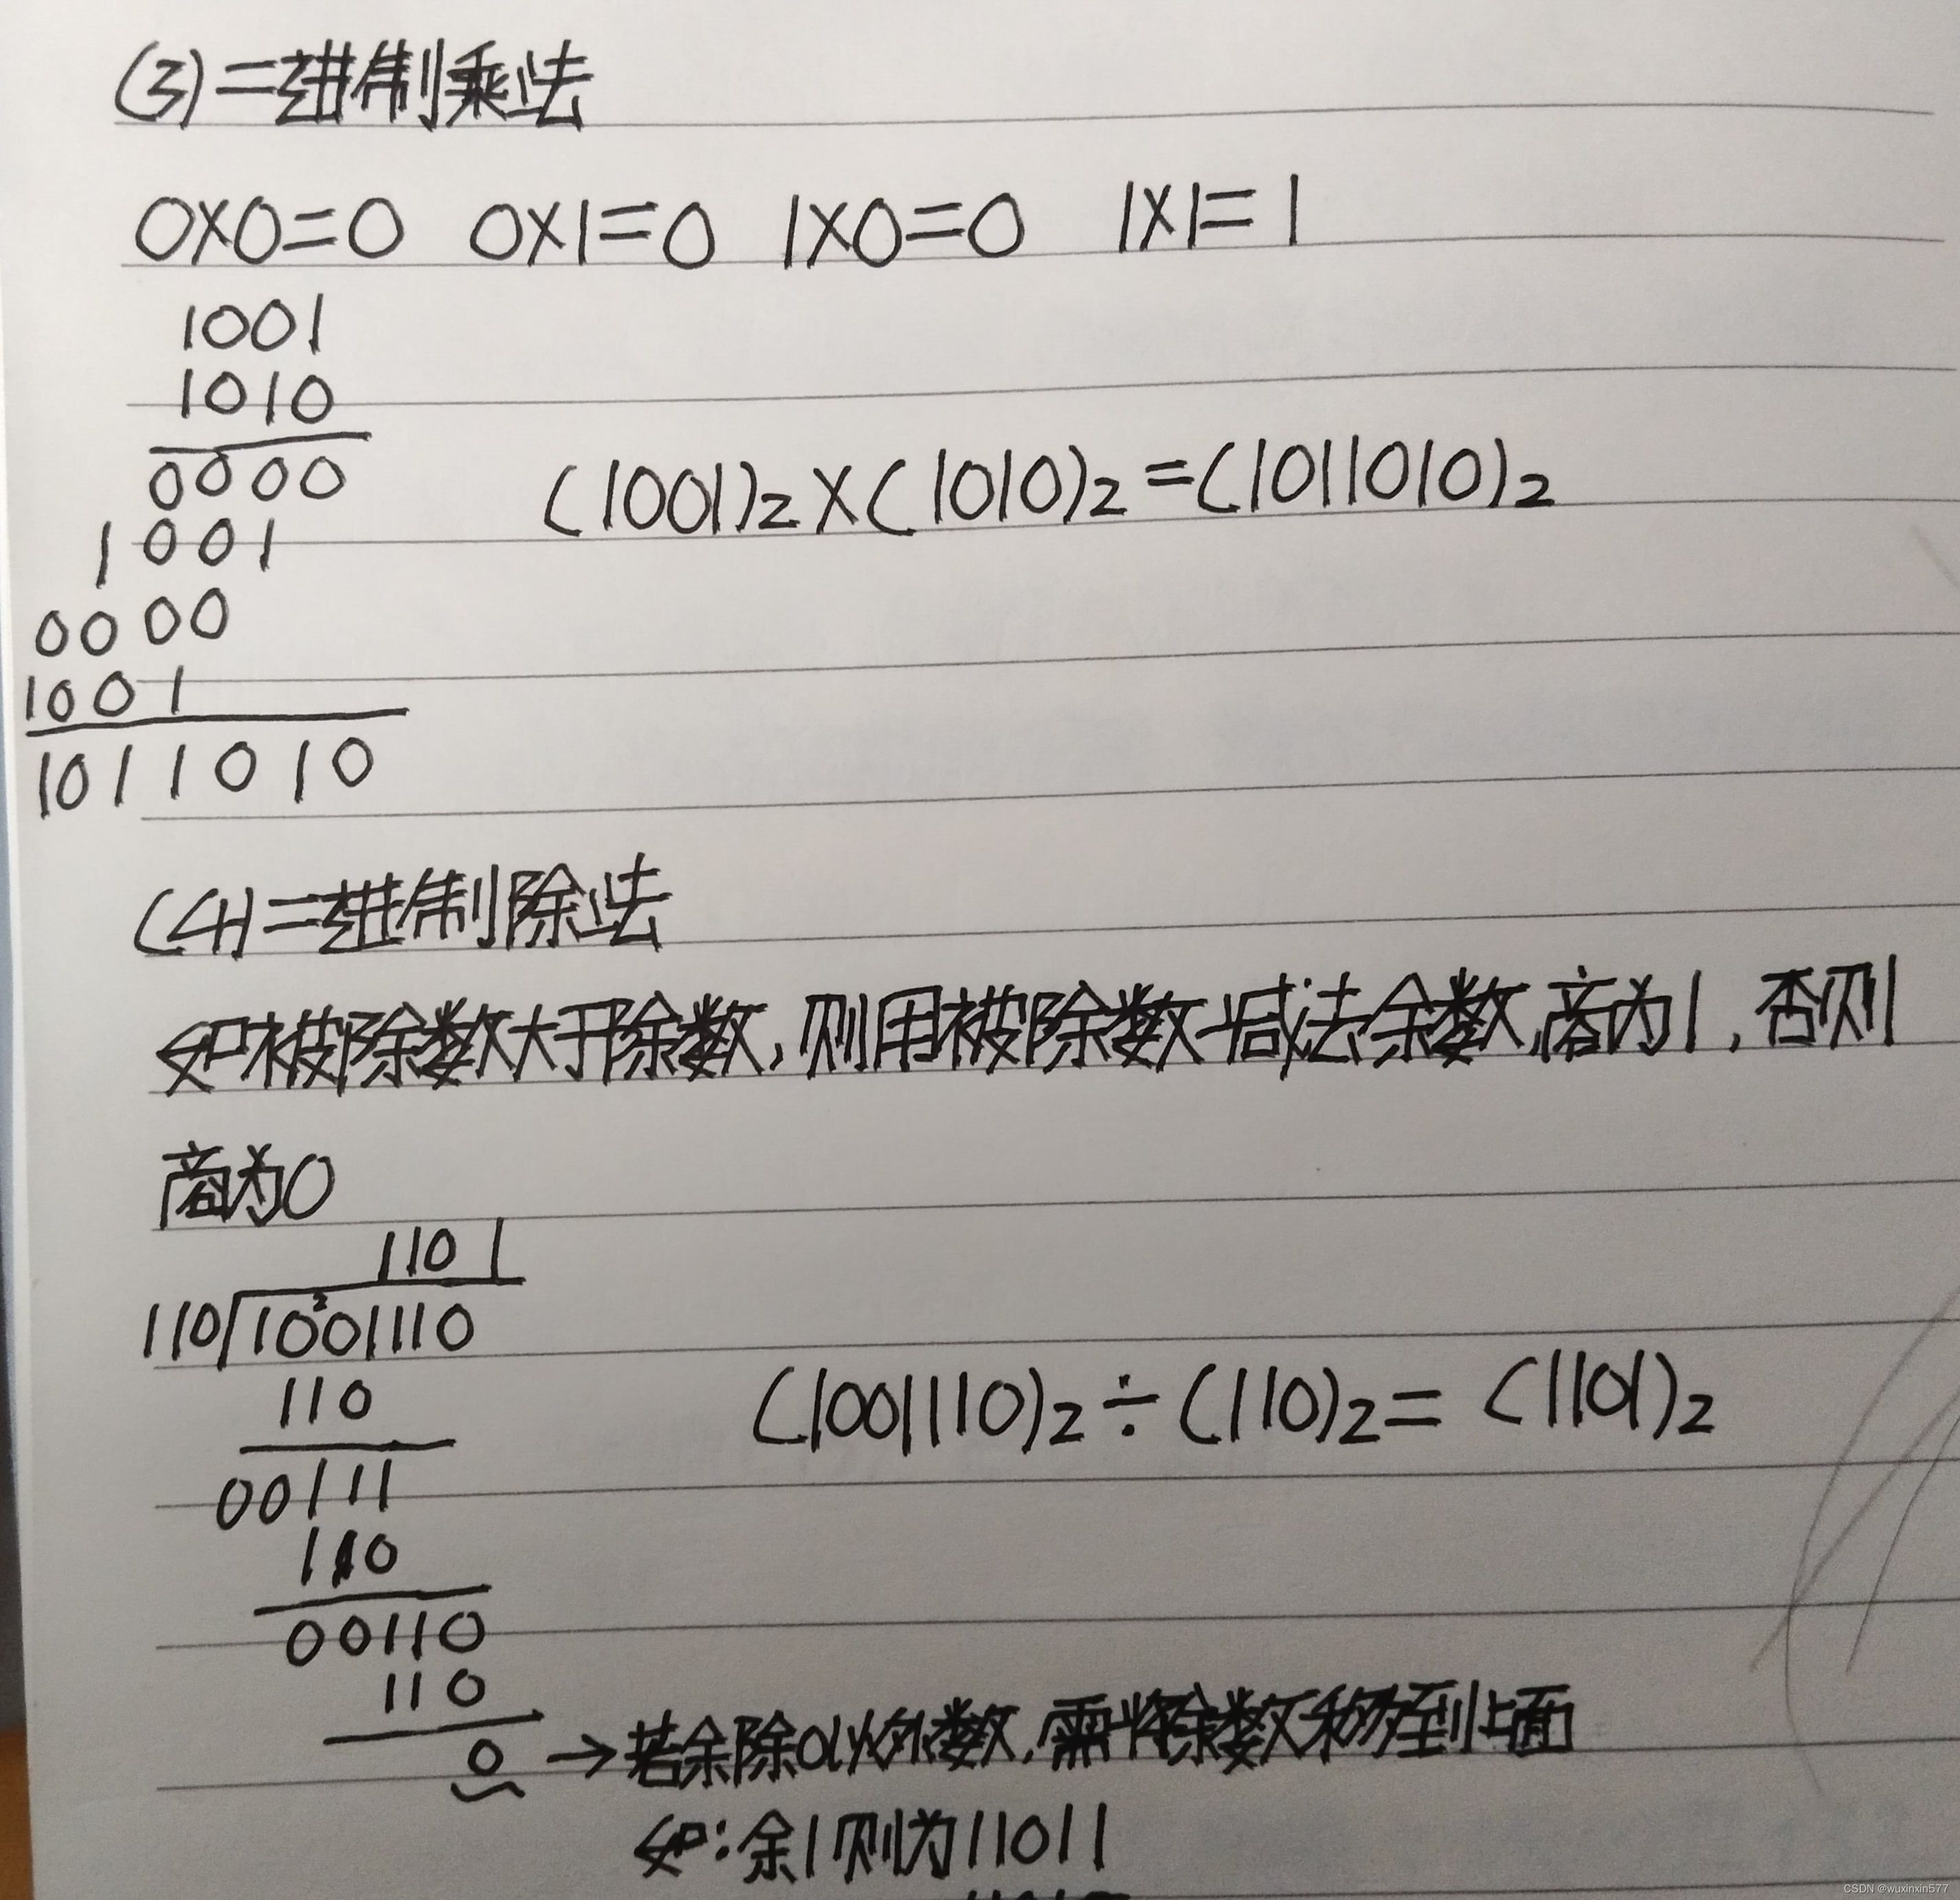 (3)二进制乘法
0×0=0 0×1=0 1×0=0 1×1=1
1001
1010
0000
1001
0000
1001
1011010
(1001)₂×(1010)₂=(1011010)₂
(4)二进制除法
如被除数大于除数,则用被除数减法余数,商为1,否则
商为0
1101
110 1001110
2
110
00111
110
00110
110
0
(1001110)₂÷(110)₂=(1101)₂
→若余除0以外数,需将除数移到上面
如:余1则为11011
CSDN @wuxinxin577